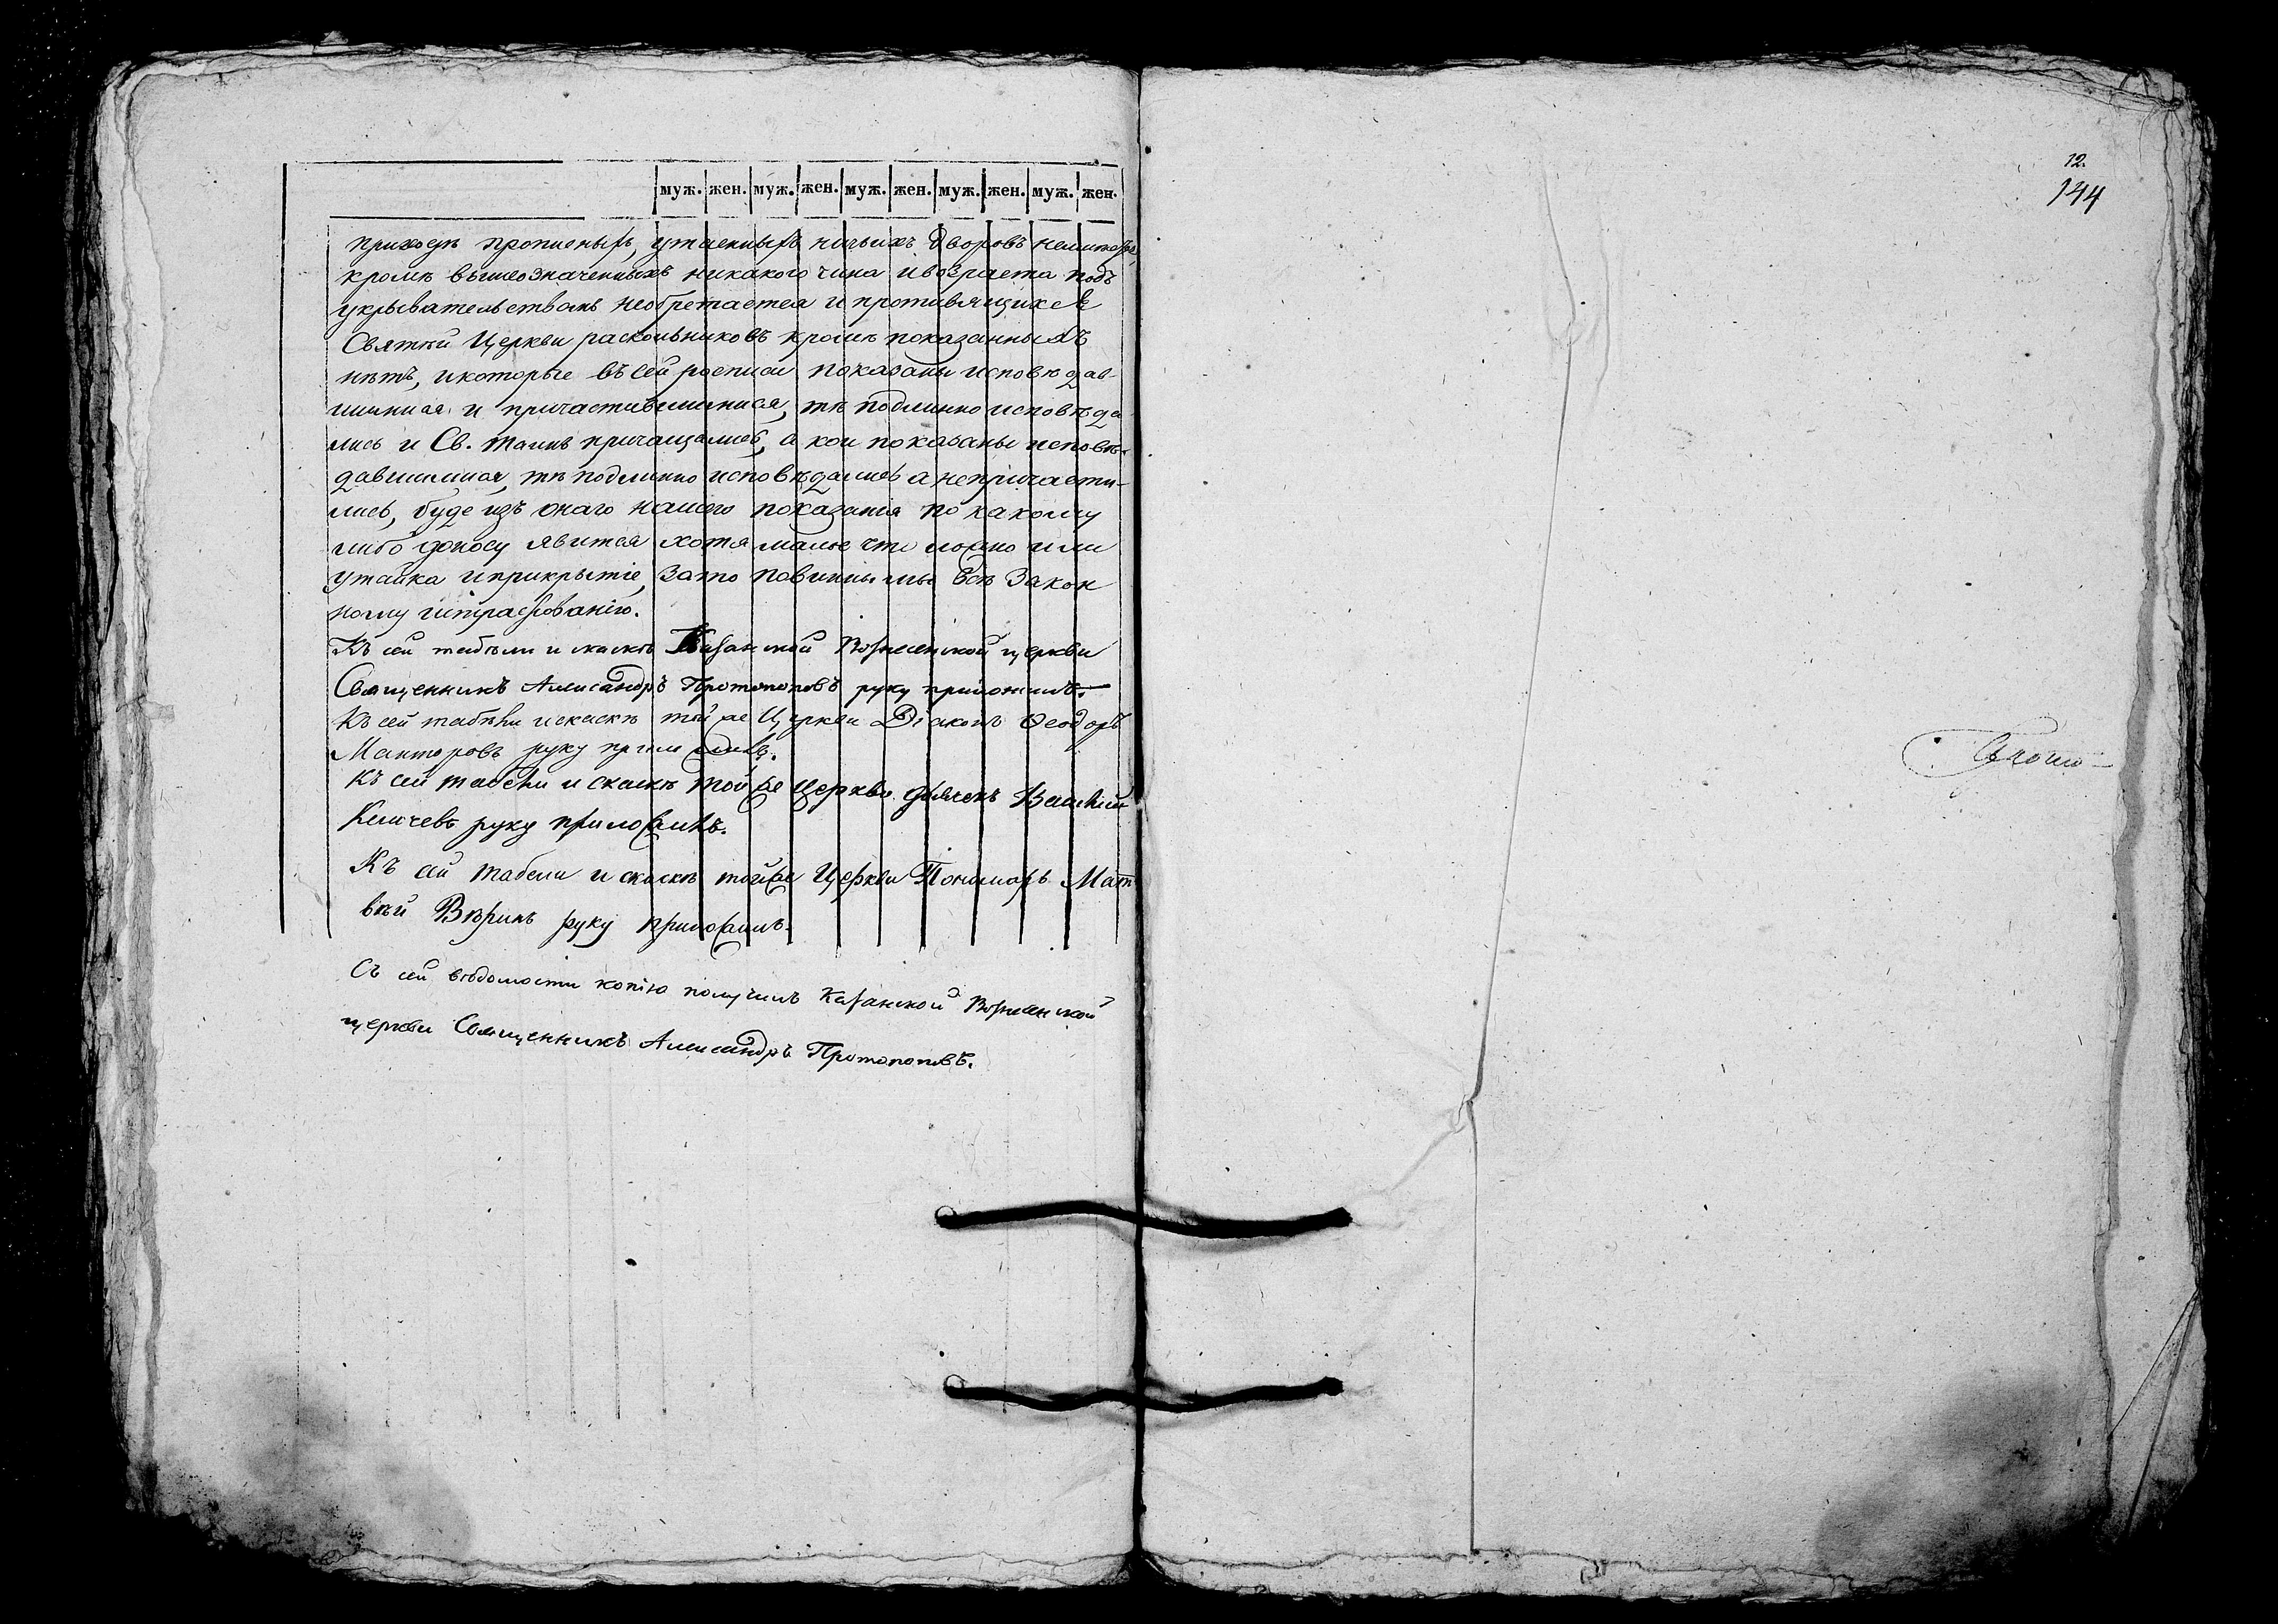 муж. жен. муж. жен. муж. жен. муж. жен. муж. жен.
приходѣ прописныхъ, утаенныхъ ничьихъ дворовъ
кромѣ вышеозначенныхъ никакого чина и возраста подъ
укрывательствомъ необретается и противящихся
Святѣй Церкви раскольниковъ кромѣ показанныхъ
нѣтъ, и которые въ сей росписи показаны исповѣдав-
шимися и причастившимися, тѣ подлинно исповѣда
лись и Св. таинъ причащались, а кои показаны исповѣ-
давшимися, тѣ подлинно исповѣдались а непричасти-
лись, буде изъ онаго нашего показанія по какому
либо доносу явится хотя малое что ложно или
утайка и прикрытіе, за то повинны мы всѣ закон
ному штрафованію.
Къ сей табели и скаскѣ Казанской Вознесенской церкви
Священникъ Александръ Протопоповъ руку приложилъ.
Къ сей табели и скаскѣ той же Церкви Діаконъ Ѳеодоръ
руку приложилъ.
Къ сей табели и скаскѣ той же Церкви дьячекъ Василій
руку приложилъ.
Къ сей табели и скаскѣ той же Церкви Пономарь Мат
вѣй Вѣринъ руку приложилъ.
Съ сей вѣдомости копію получилъ Казанской Вознесенской
церкви Священникъ Александръ Протопоповъ.
12.
144